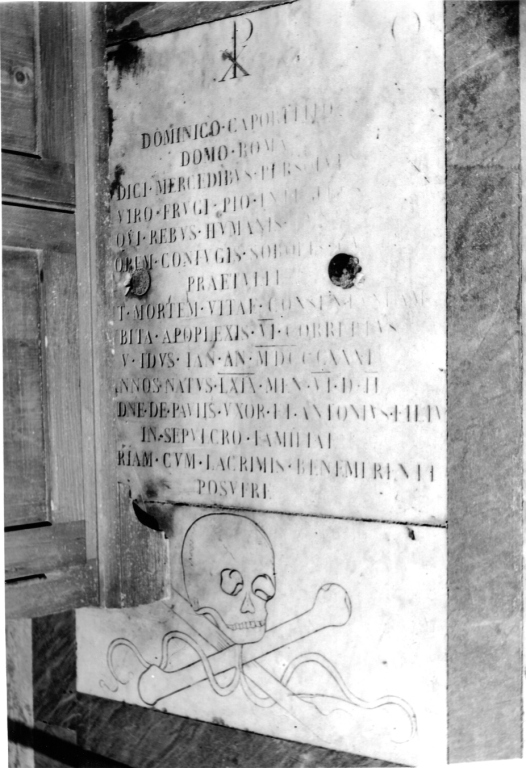 DOMINICO·CAPO
DOMO·ROMA
DICI·MERCEDIBVS·
VIRO·FRVGI·PIO·
QVI·REBVS·HVMANIS
CONIVGIS·
PRAETVLIT
T·MORTEM·VITAE·
BITA·APOPLEXIS·VI·CORREPTVS
V·IDVS·IAN·AN·
NNOS·NATVS·LXIX·MEN·VI·D·II
DNE·DE·PAVLIS·VXOR·ET·ANTONIVS·FILIV
IN·SEPVLCRO·FAMILIAE
RIAM·CVM·LACRIMIS·BENEMERENTI
POSVERE